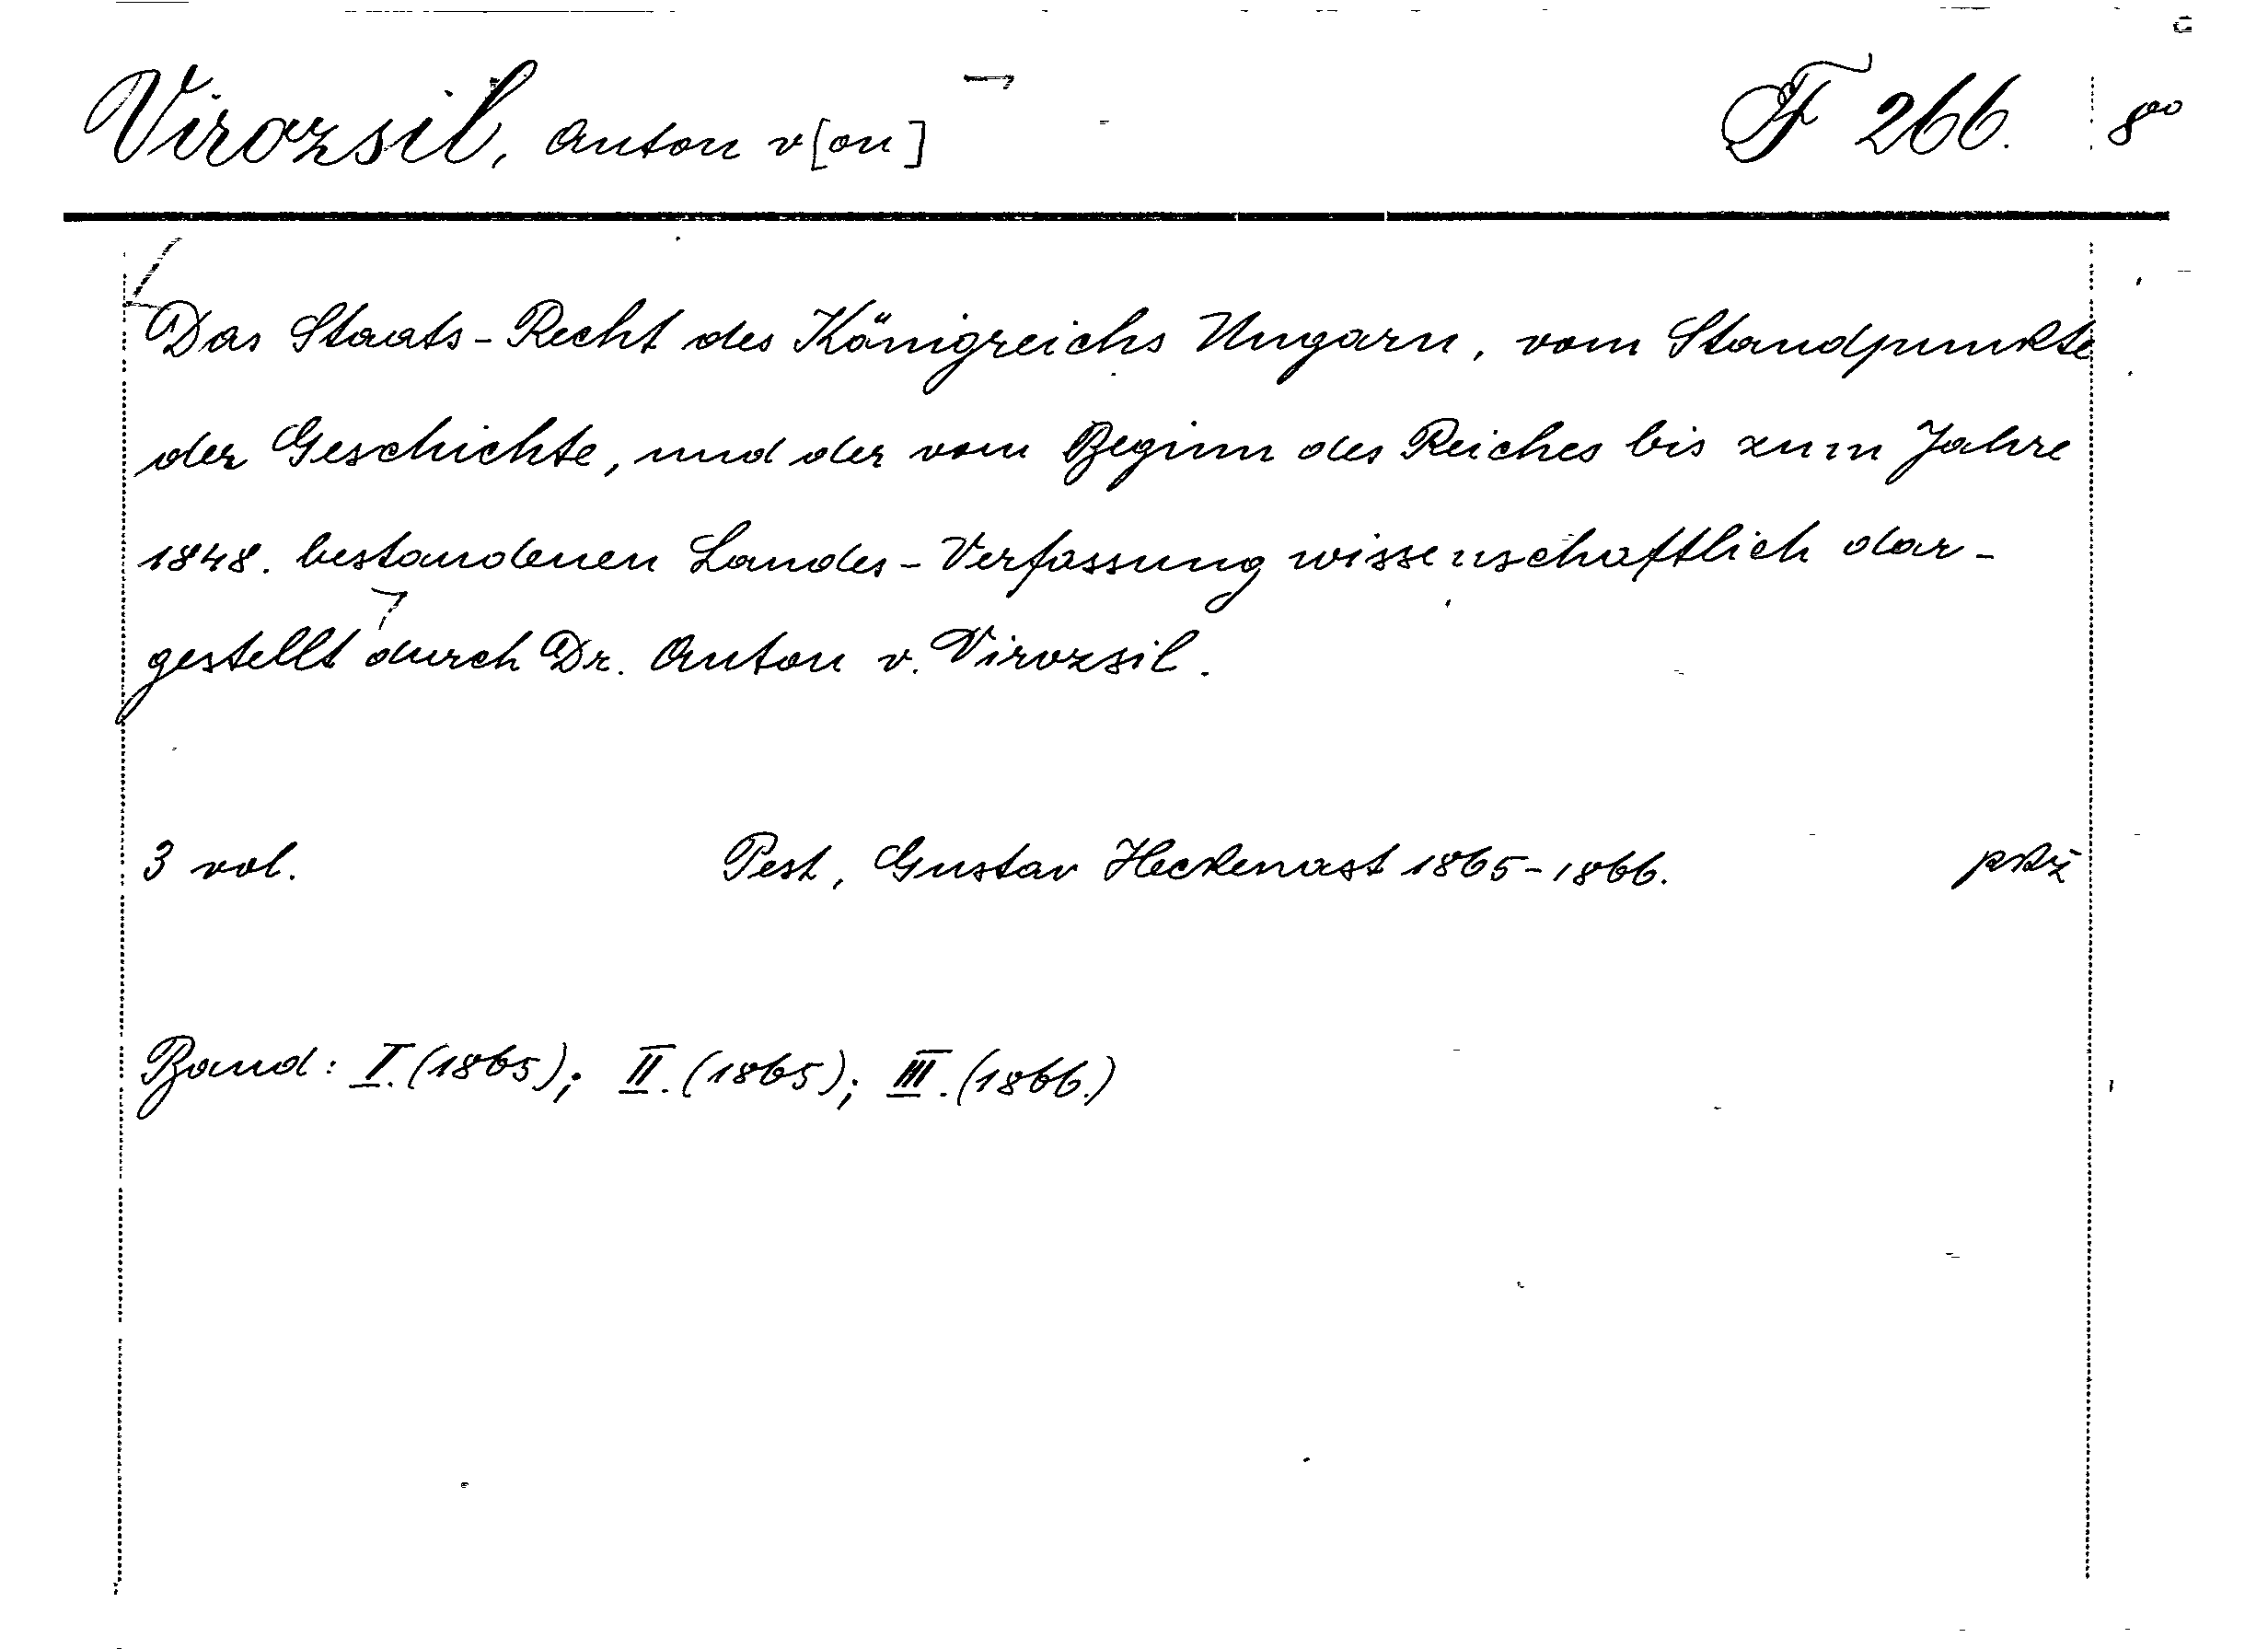 Virozsil, Anton v[on] F 266. 8°°
Das Staats-Recht des Königreichs Ungarn, vom Standpunkte
der Geschichte, und der vom Beginn des Reiches bis zum Jahre
1848. bestandenen Landes-Verfassung wissenschaftlich dar-
gestellt durch Dr. Anton v. Virozsil.
3 vol. Pest, Gustav Heckenast 1865-1866.
Band: I. (1865); II. (1865); III. (1866.)